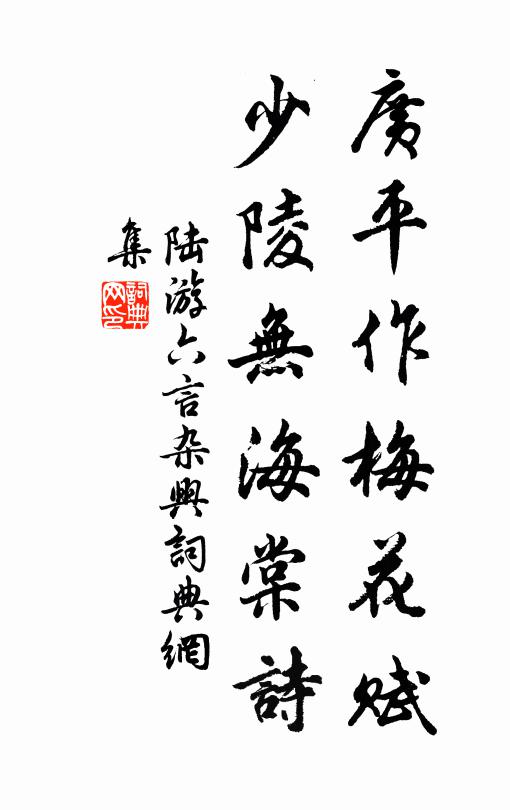 廣平作梅花賦
少陵無海棠詩
陆游六言杂興詞典網
集
詞典
网印